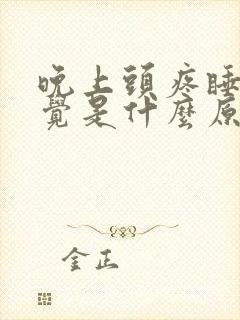 晚上頭疼睡
覺是什麼原
金正